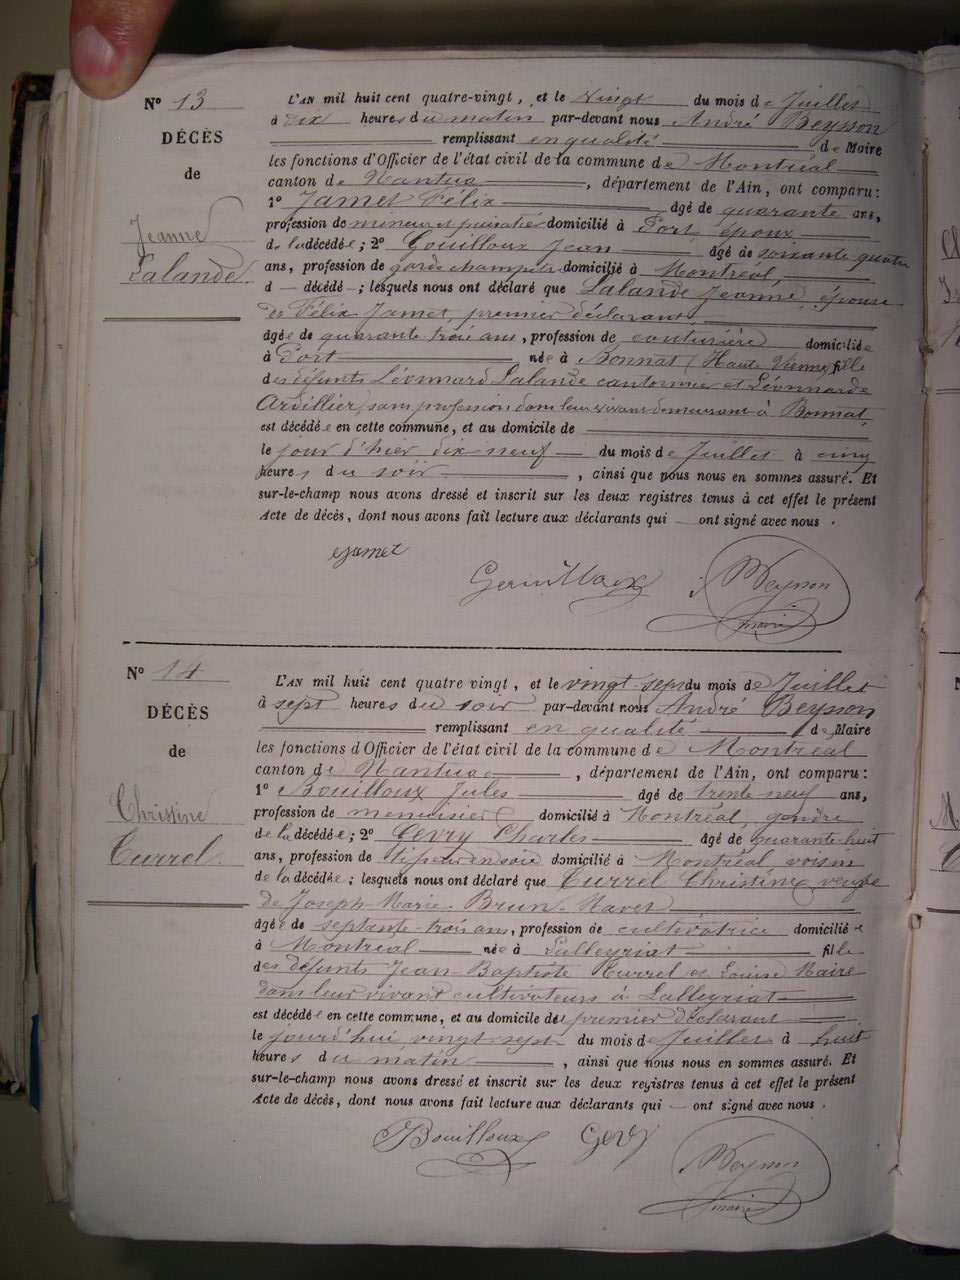 N° 13
DÉCÈS
de
Jeanne
Lalande
L'AN mil huit cent quatre-vingt, et le vingt du mois de Juillet
à dix heures du matin par-devant nous André Beysson
remplissant en qualité de Maire
les fonctions d'Officier de l'état civil de la commune de Montréal
canton de Nantua, département de l'Ain, ont comparu:
1° Jamet Félix âgé de quarante ans,
profession de mineur et domicilié à Port époux
de la décédée; 2° Gouilloux Jean âgé de soixante quatre
ans, profession de garde champêtre domicilié à Montréal
d — décédé —; lesquels nous ont déclaré que Lalande Jeanne, épouse
de Félix Jamet, premier déclarant
âgée de quarante trois ans, profession de couturière domiciliée
à Port née à Bonnat (Haute Vienne) fille
des défunts Léonnard Lalande cantonnier et Léonnarde
Ardillier, sans profession dans leur vivant demeurant à Bonnat,
est décédée en cette commune, et au domicile de
le jour d'hier dix neuf du mois de Juillet à cinq
heures du soir, ainsi que nous nous en sommes assuré. Et
sur-le-champ nous avons dressé et inscrit sur les deux registres tenus à cet effet le présent
Acte de décès, dont nous avons fait lecture aux déclarants qui — ont signé avec nous.
Jamet
Beysson
maire
N° 14
DÉCÈS
de
Christine
Curret
L'AN mil huit cent quatre vingt, et le vingt-sept du mois de Juillet
à sept heures du soir par-devant nous André Beysson
remplissant en qualité de Maire
les fonctions d'Officier de l'état civil de la commune de Montréal
canton de Nantua, département de l'Ain, ont comparu:
1° Bouilloux Jules âgé de trente-neuf ans,
profession de menuisier domicilié à Montréal, gendre
de la décédée; 2° Gevry Charles âgé de quarante-huit
ans, profession de en soie domicilié à Montréal voisin
de la décédée; lesquels nous ont déclaré que Curret Christine, veuve
de Joseph-Marie Brun-Navet
âgée de septante-trois ans, profession de cultivatrice domiciliée
à Montréal née à Lalleyriat fille
des défunts Jean-Baptiste Curret et Louise Maire
dans leur vivant cultivateurs à Lalleyriat
est décédée en cette commune, et au domicile du premier déclarant
le jourd'hui vingt sept du mois de Juillet à huit
heures du matin, ainsi que nous nous en sommes assuré. Et
sur-le-champ nous avons dressé et inscrit sur les deux registres tenus à cet effet le présent
Acte de décès, dont nous avons fait lecture aux déclarants qui — ont signé avec nous.
Bouilloux Gevry
Beysson
maire